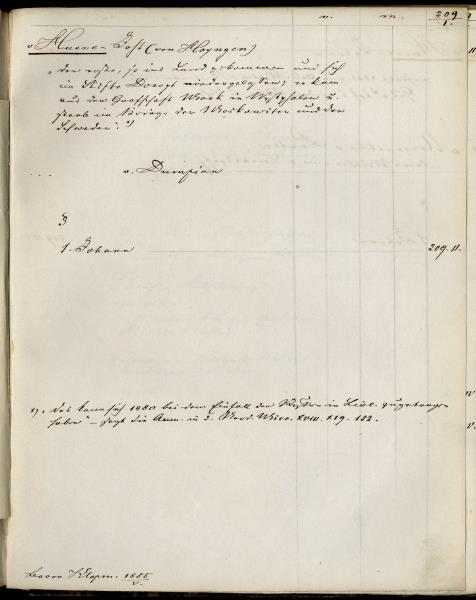 n. m. 209
I.
v Huene - Jost (von Hoyngen)
"der erste, so ins Land gekommen und sich
im Stifte Dorpt niedergelassen; er kam
aus der Grafschaft Mark in Westphalen u.
starb im Kriege der Moskowiter und der
Schweden". 1)
v. Durapian
§
1. Johann 209. II.
1). Das kann sich 1480 bei dem Einfall der Russen in Livl. zugetragen
haben - sagt die Anm. in d. Nord. Misc. XVIII. 219. 152.
Baron Klopm. 1855
V.